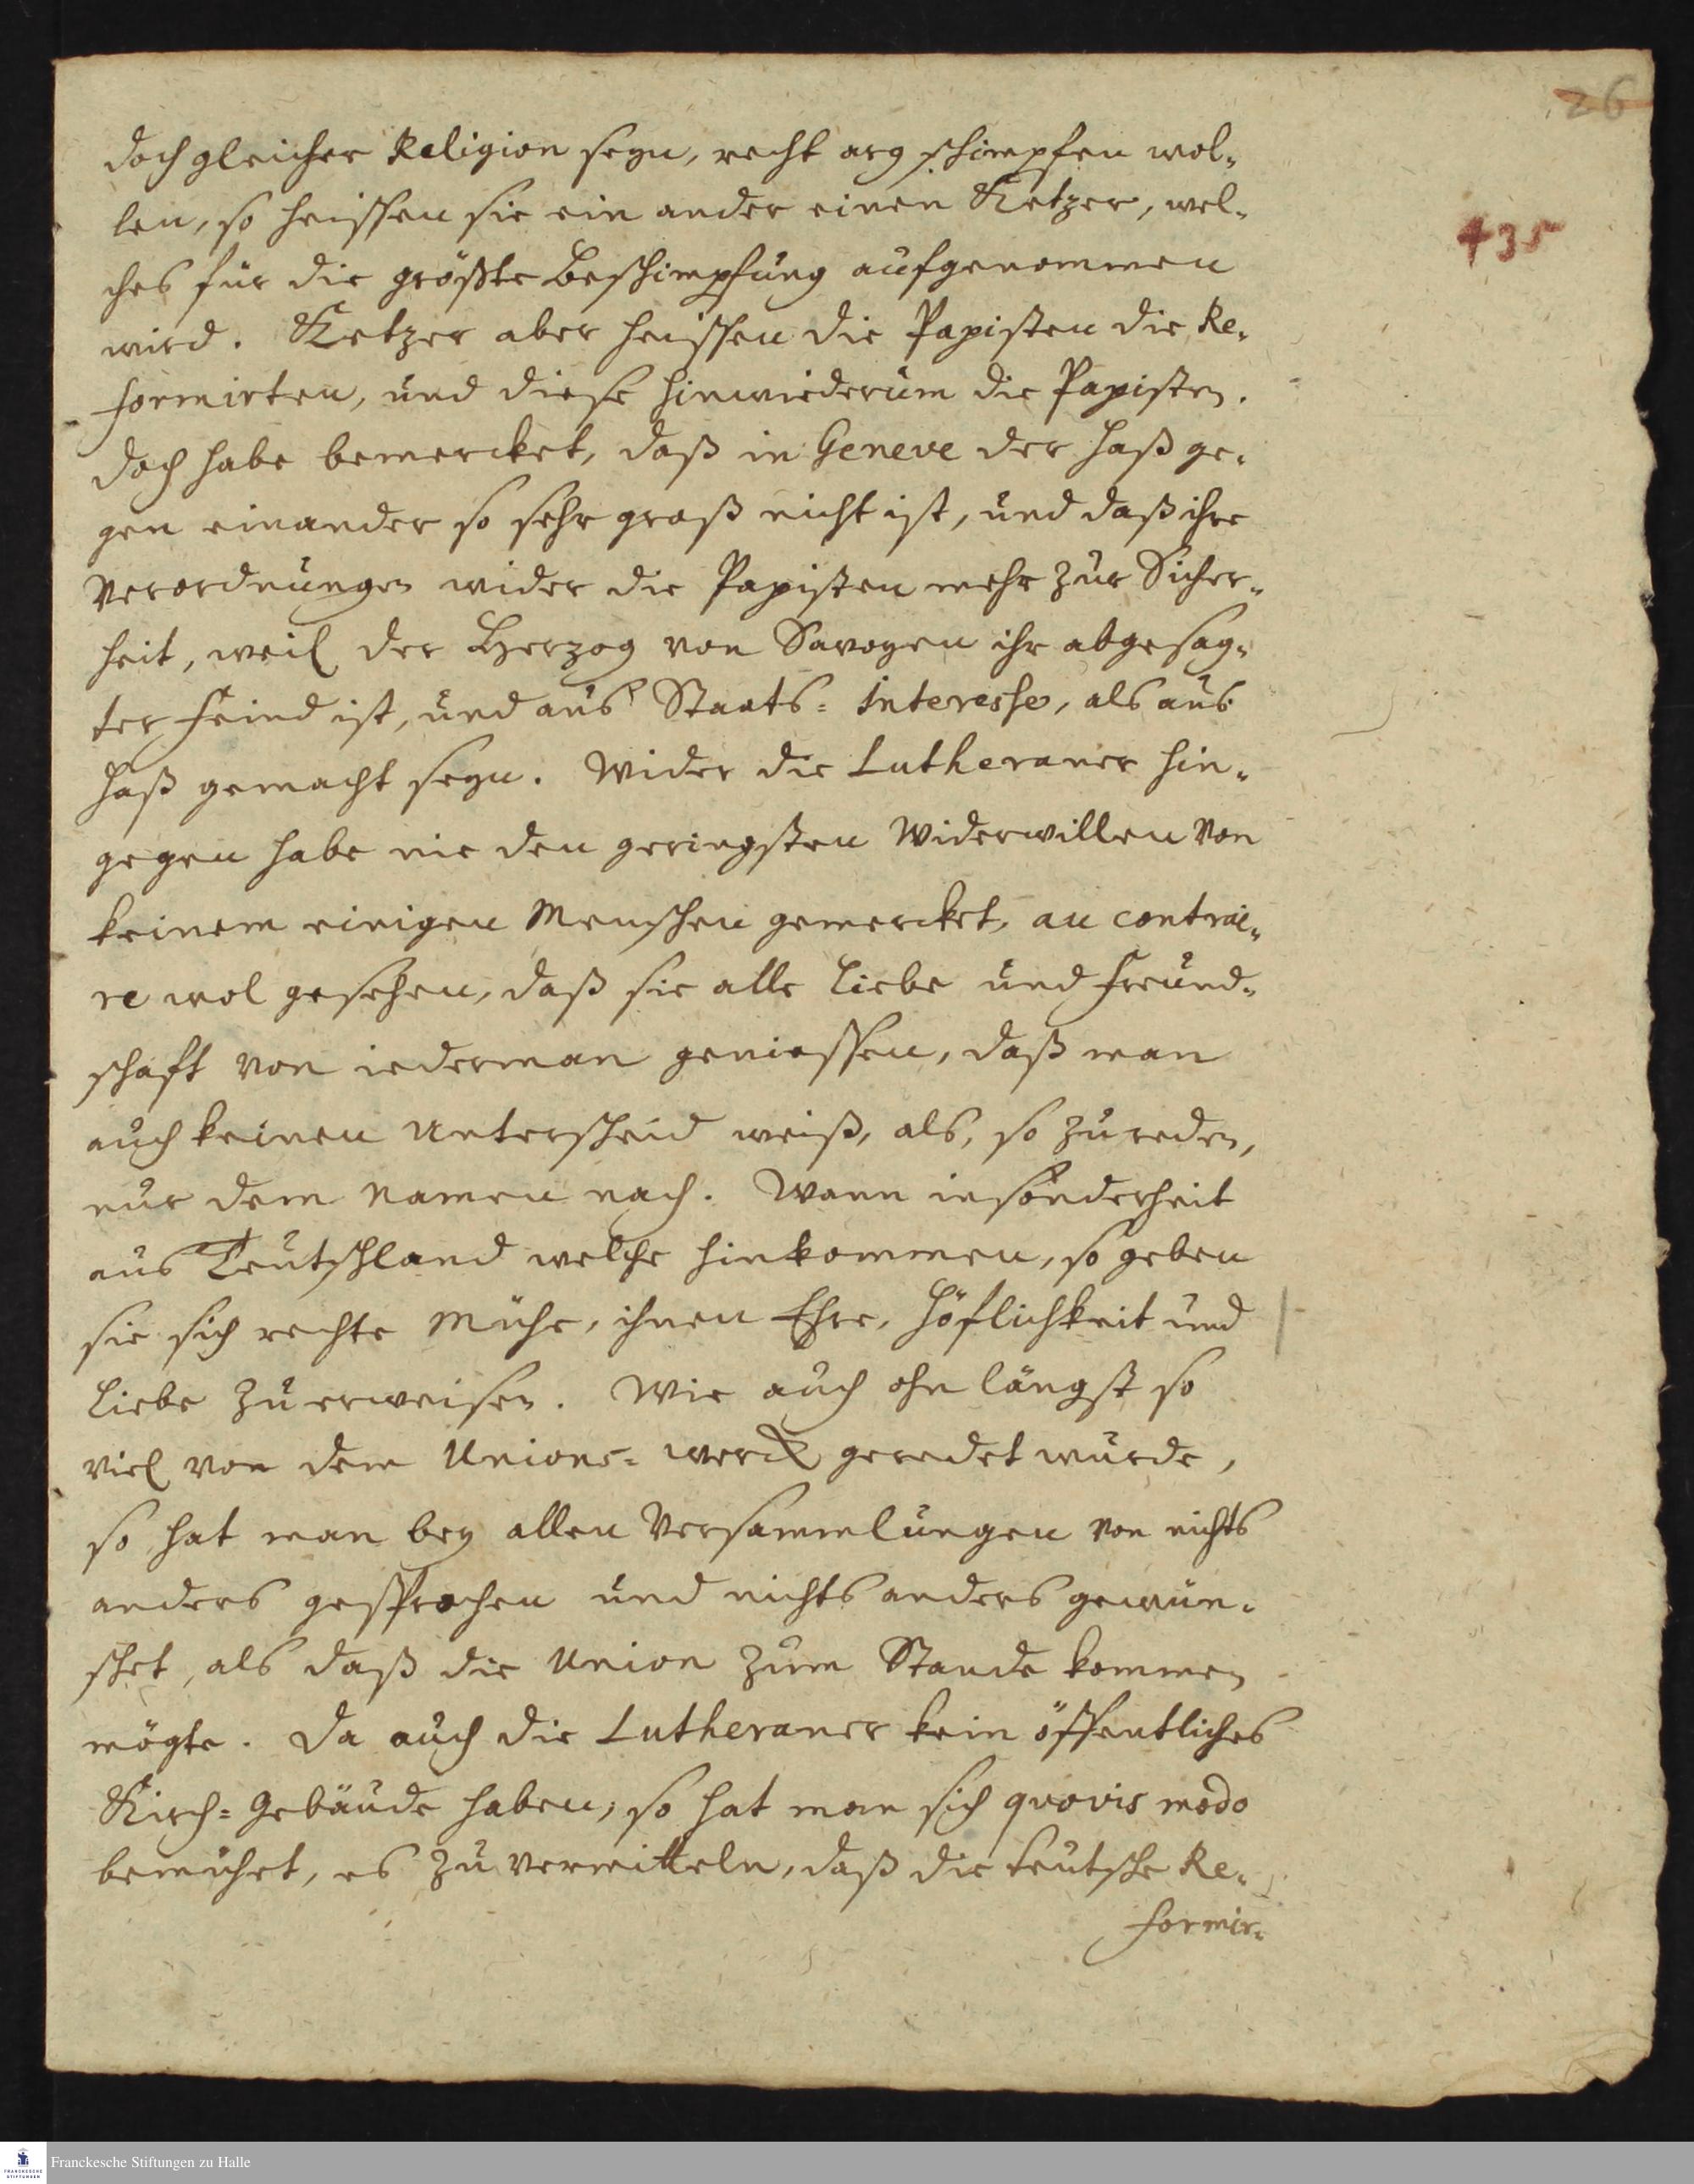 26
435
doch gleicher Religion seyn, recht arg schimpfen wol-
len, so heissen sie ein ander einen Ketzer, wel-
ches für die gröste Beschimpfung aufgenommen
wird. Ketzer aber heissen die Papisten die Re-
formirten, und diese hinwiederum die Papisten.
doch habe bemercket, daß in Geneve der Haß ge-
gen einander so sehr groß nicht ist, und daß ihre
Verordnungen wider die Papisten mehr zur Sicher-
heit, weil der Herzog von Savoyen ihr abgesag-
ter Feind ist, und aus Staats-Interesse, als aus
Haß gemacht seyn. Wider die Lutheraner hin-
gegen habe nie den geringsten Widerwillen von
keinem einigen Menschen gemercket, au contrai-
re wol gesehen, daß sie alle Liebe und Freund-
schaft von iederman geniessen, daß man
auch keinen Unterscheid weiß, als, so zureden,
nur dem Namen nach. Wann insonderheit
aus Teutschland welche hinkommen, so geben
sie sich rechte Mühe, ihnen Ehre, Höflichkeit und
Liebe zu erweisen. Wie auch ohn längst so
viel von dem Unions-werck geredet wurde,
so hat man bey allen Versammlungen von nichts
anders gesprochen und nichts anders gewün-
schet, als daß die Union zum Stande kommen
mögte. Da auch die Lutheraner kein öffentliches
Kirch-Gebäude haben; so hat man sich quovis modo
bemühet, es zu vermitteln, daß die teutsche Re-
formir-
Franckesche Stiftungen zu Halle